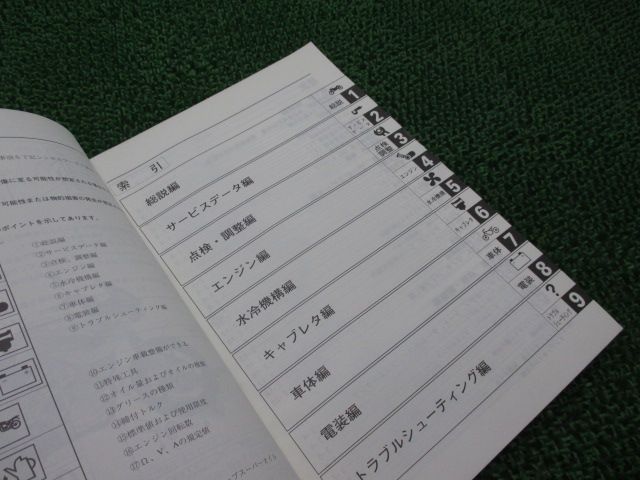 可能性または物的損害の発生が
ポイントを示してあります。
①総説編
②サービスデータ編
③点検、調整編
④エンジン編
⑤水冷機構編
⑥キャブレタ編
⑦車体編
⑧電装編
⑨トラブルシューティング編
⑩エンジン車載整備ができる
⑪特殊工具
⑫オイル量およびオイルの種類
⑬グリースの種類
⑭締付トルク
⑮標準値および使用限度
⑯エンジン回転数
⑰Ω、V、Aの規定値
索 引
総説編
サービスデータ編
点検・調整編
エンジン編
水冷機構編
キャブレタ編
車体編
電装編
トラブルシューティング編
総説
1
2
点検
調整
3
エンジン
4
水冷機構
5
キャブレタ
6
車体
7
電装
8
?
トラブル
シューティング
9